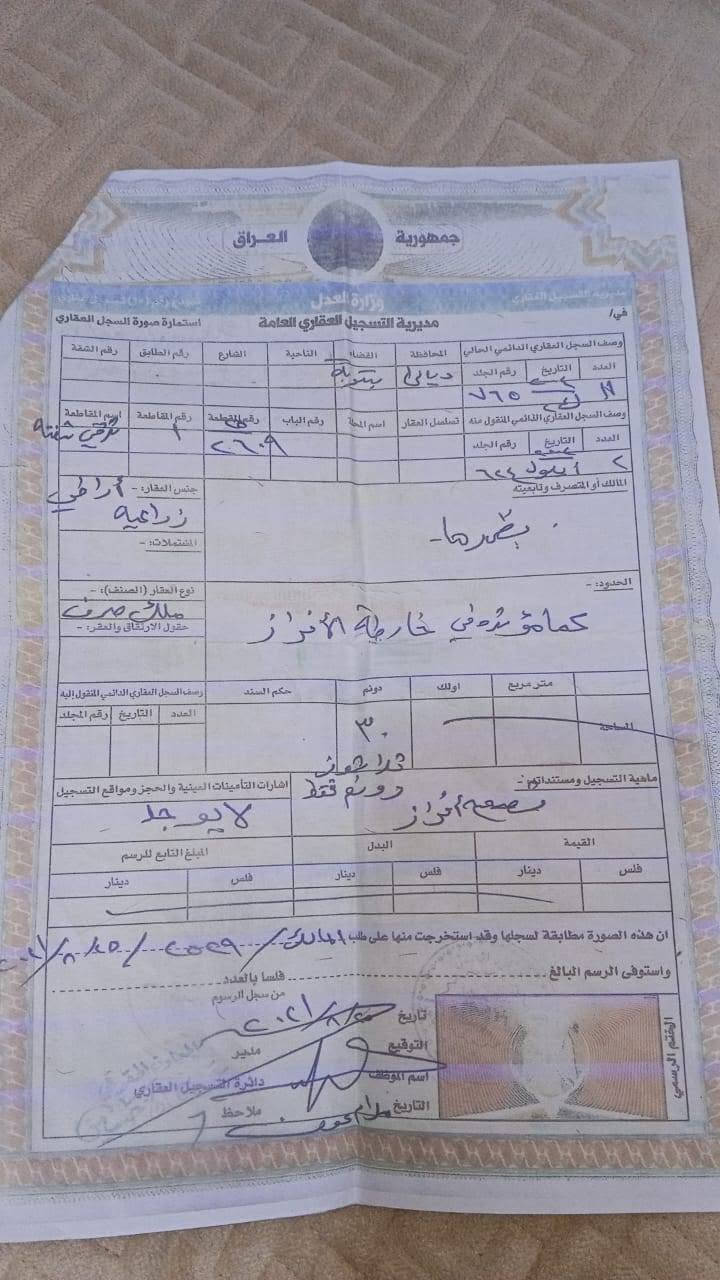 جمهورية العراق
وزارة العدل
مديرية التسجيل العقاري
مديرية التسجيل العقاري العامة
استمارة صورة السجل العقاري
في/
وصف السجل العقاري الدائمي الحالي
المحافظة
القضاء
الناحية
الشارع
رقم الطابق
رقم الشقة
العدد
التاريخ
رقم الجلد
ديالى
٧٦٥
وصف السجل العقاري الدائمي المنقول منه
تسلسل العقار
اسم المحلة
رقم الباب
رقم القطعة
رقم المقاطعة
اسم المقاطعة
العدد
التاريخ
رقم الجلد
٢٦٠٩
١
٢
أيلول
٦٢٤
المالك أو المتصرف وتابعيته
بظهرها -
جنس العقار: - أراضي
زراعية
المشتملات: -
الحدود: -
كما مؤشره في خارطة الأفراز
نوع العقار (الصنف): -
ملك صرف
حقول الارتفاق والعقر: -
متر مربع
اولك
دونم
حكم السند
وصف السجل العقاري الدائمي المنقول إليه
العدد
التاريخ
رقم المجلد
المساحة
٣٠
ثلاثون
دونم فقط
ماهية التسجيل ومستنداته: -
أفراز
اشارات التأمينات العينية والحجز ومواقع التسجيل
لا يوجد
القيمة
البدل
المبلغ التابع للرسم
فلس
دينار
فلس
دينار
فلس
دينار
ان هذه الصورة مطابقة لسجلها وقد استخرجت منها على طلب المالك
واستوفى الرسم البالغ
فلسا بالعدد
من سجل الرسوم
تاريخ
التوقيع
مدير
اسم الموظف
دائرة التسجيل العقاري
التاريخ
ملاحظ
الختم الرسمي